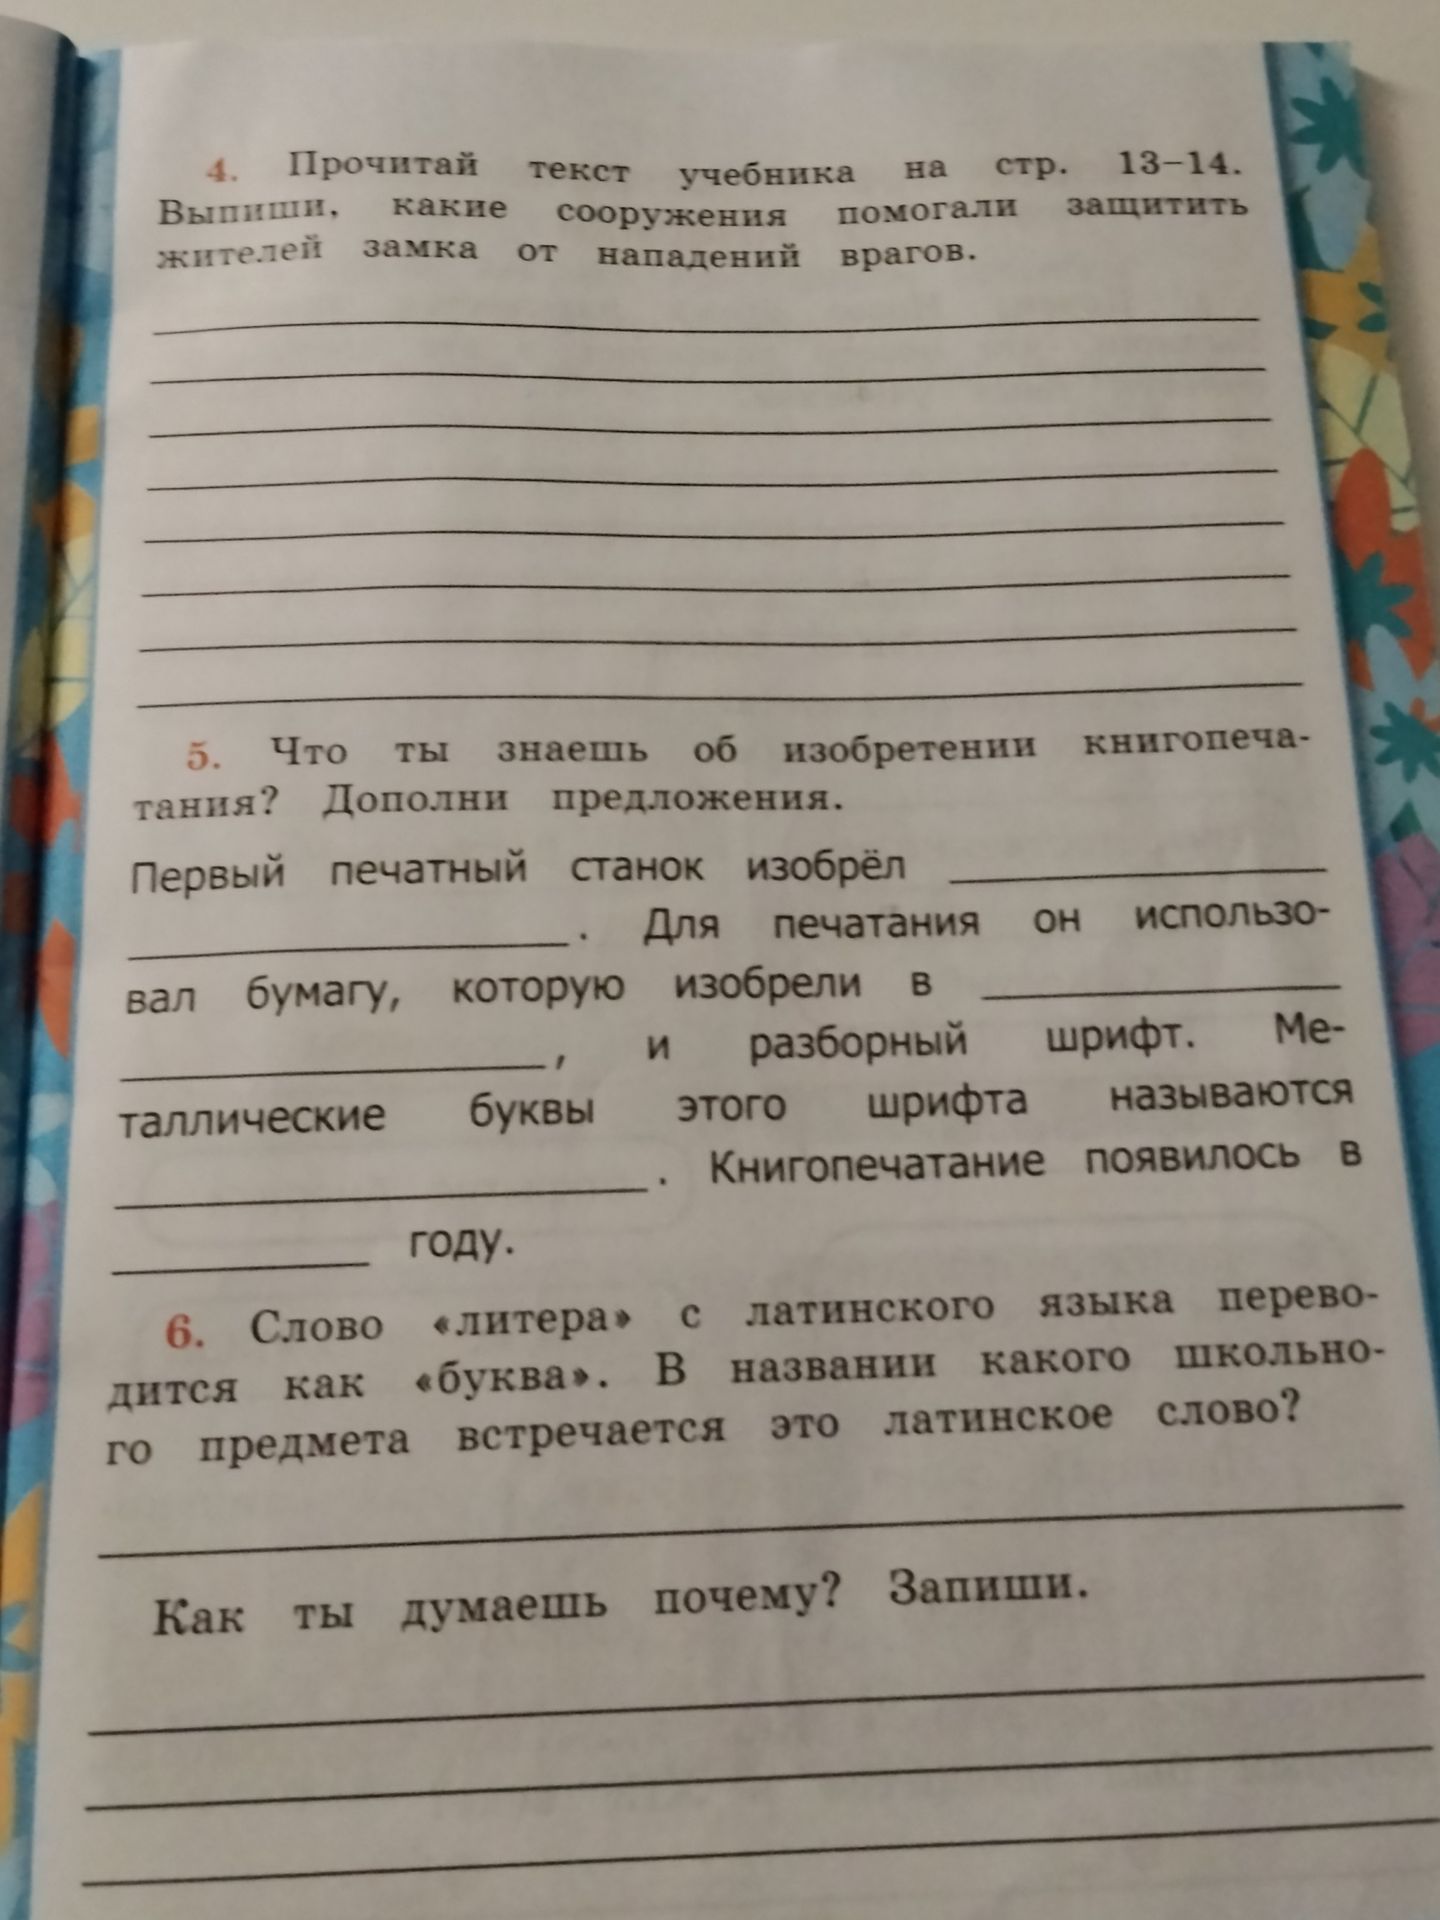 4. Прочитай текст учебника на стр. 13–14.
Выпиши, какие сооружения помогали защитить
жителей замка от нападений врагов.
5. Что ты знаешь об изобретении книгопеча-
тания? Дополни предложения.
Первый печатный станок изобрёл
. Для печатания он использо-
вал бумагу, которую изобрели в
, и разборный шрифт. Ме-
таллические буквы этого шрифта называются
. Книгопечатание появилось в
году.
6. Слово «литера» с латинского языка перево-
дится как «буква». В названии какого школьно-
го предмета встречается это латинское слово?
Как ты думаешь почему? Запиши.